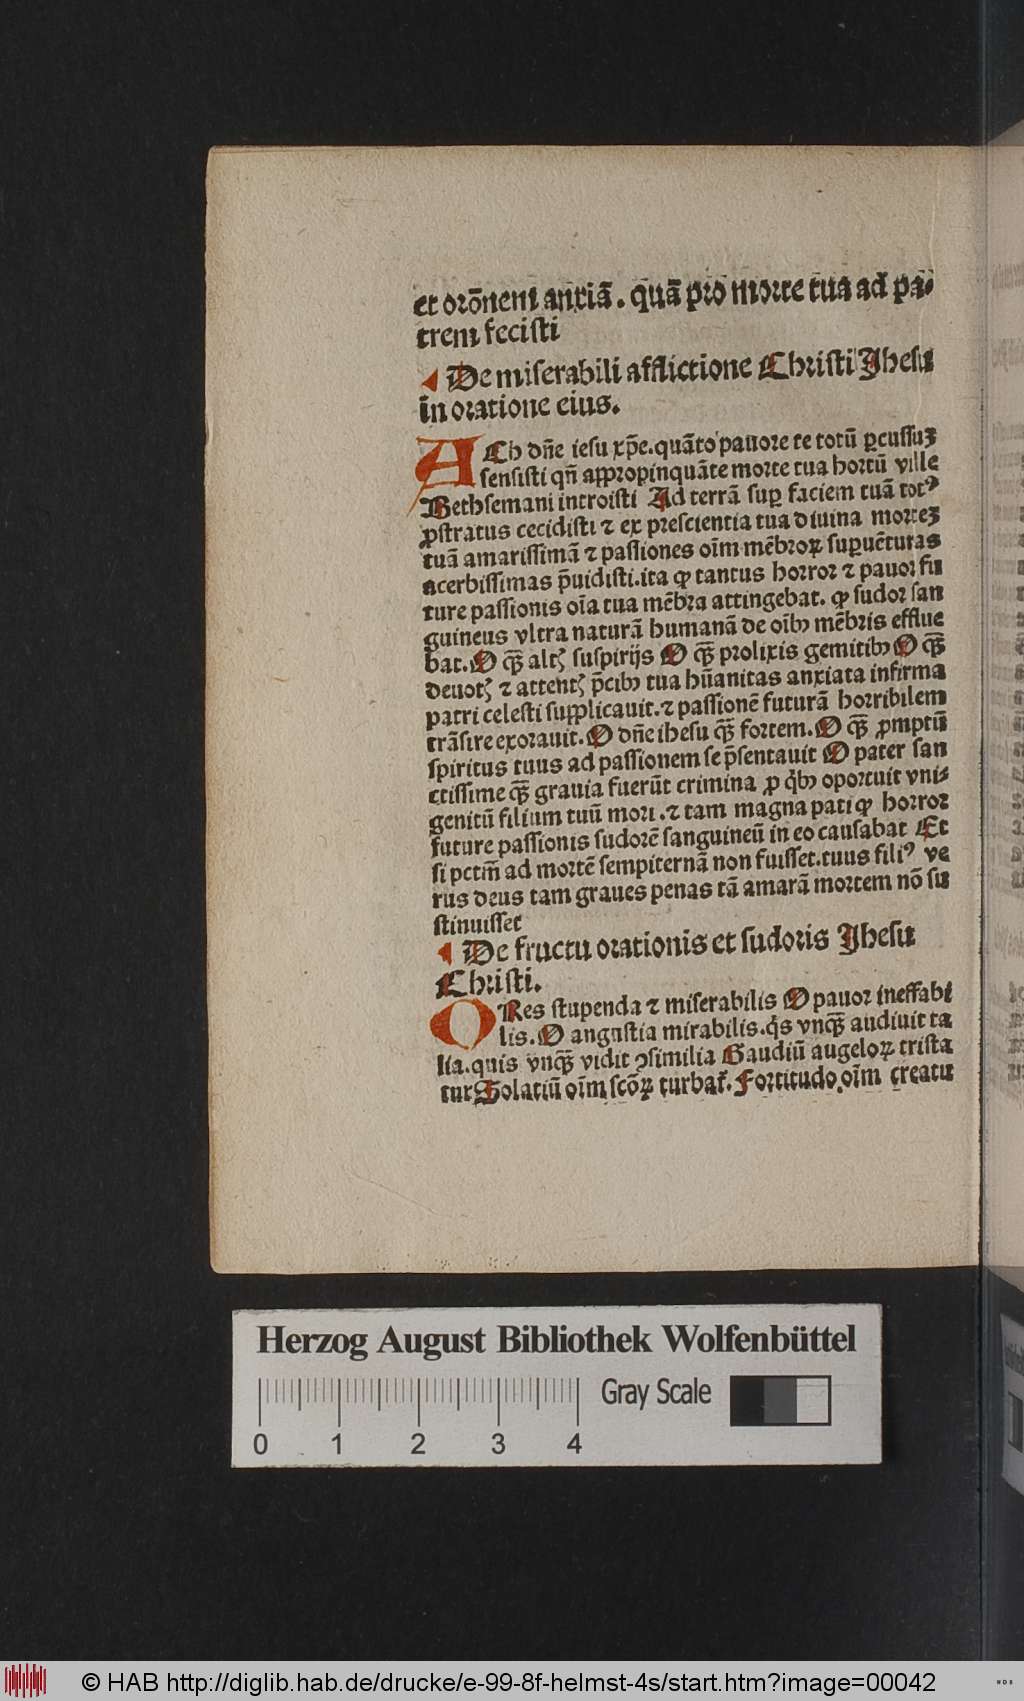 et orōnem anxiā. quā pro morte tua ad pa-
trem fecisti
De miserabili afflictione Christi Jhesu
in oratione eius.
ACh dn̄e iesu xp̄e. quāto pauore te totū ꝑcussuꝫ
sensisti qn̄ appropinquāte morte tua hortū ville
Bethsemani introisti Ad terrā suꝑ faciem tuā totꝰ
ꝓstratus cecidisti ⁊ ex prescientia tua diuina morteꝫ
tuā amarissimā ⁊ passiones oīm mēbroꝝ suꝑuēturas
acerbissimas p̄uidisti. ita ꝙ tantus horror ⁊ pauor fu
ture passionis oīa tua mēbra attingebat. ꝙ sudor san
guineus vltra naturā humanā de oībꝫ mēbris efflue
bat. O qꝫ̄ altꝭ suspirijs O qꝫ̄ prolixis gemitibꝫ O qꝫ̄
deuotꝭ ⁊ attentꝭ p̄cibꝫ tua hūanitas anxiata infirma
patri celesti supplicauit. ⁊ passionē futurā horribilem
trāsire exorauit. O dn̄e ihesu qꝫ̄ fortem. O qꝫ̄ ꝓmptū
spiritus tuus ad passionem se p̄sentauit O pater san
ctissime qꝫ̄ grauia fuerūt crimina ꝓ qͥbꝫ oportuit vni-
genitū filium tuū mori. ⁊ tam magna pati ꝙ horror
future passionis sudorē sanguineū in eo causabat Et
si pctm̄ ad mortē sempiternā non fuisset. tuus filiꝰ ve
rus deus tam graues penas tā amarā mortem nō su
stinuisset
De fructu orationis et sudoris Jhesu
Christi.
ORes stupenda ⁊ miserabilis O pauor ineffabi
lis. O angustia mirabilis. qͥs vnqꝫ̄ audiuit ta
lia. quis vnqꝫ̄ vidit ꝯsimilia Gaudiū augeloꝝ trista
tur Solatiū oīm scōꝝ turbat̃. Fortitudo oīm creatu
Herzog August Bibliothek Wolfenbüttel
Gray Scale
0 1 2 3 4
© HAB http://diglib.hab.de/drucke/e-99-8f-helmst-4s/start.htm?image=00042